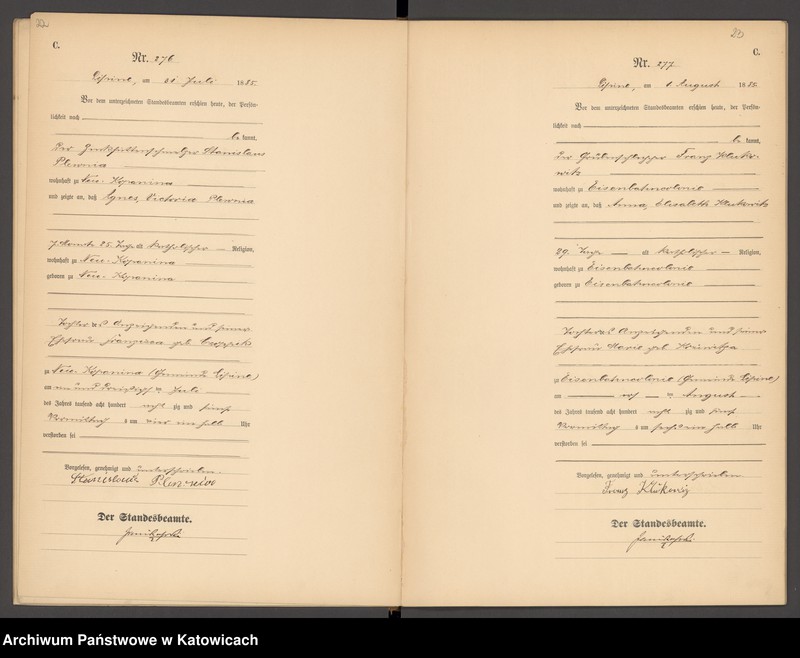 22
C.
Nr. 276
Lipine, am 31 Juli 1885.
Vor dem unterzeichneten Standesbeamten erschien heute, der Persön-
lichkeit nach
be kannt,
der Zinkhüttenschmelzer Stanislaus
Plewnia
wohnhaft zu Neu-Kopanina
und zeigte an, daß Agnes, Victoria Plewnia
7 Monate 25 Tage alt katholischer Religion,
wohnhaft zu Neu-Kopanina
geboren zu Neu-Kopanina
Tochter des Anzeigenden und seiner
Ehefrau Franzisca geb.
zu Neu-Kopanina (Gemeinde Lipine)
am ein und dreißigsten Juli
des Jahres tausend acht hundert acht zig und fünf
Vormittags um vier ein halb Uhr
verstorben sei
Vorgelesen, genehmigt und unterschrieben.
Stanislaus Plewnia
Der Standesbeamte.
23
C.
Nr. 277
Lipine, am 1 August 1885.
Vor dem unterzeichneten Standesbeamten erschien heute, der Persön-
lichkeit nach
be kannt,
der Grubenschlepper Franz
wohnhaft zu Eisenbahncolonie
und zeigte an, daß Anna, Elisabeth
29 Tage alt katholischer Religion,
wohnhaft zu Eisenbahncolonie
geboren zu Eisenbahncolonie
Tochter des Anzeigenden und seiner
Ehefrau Marie geb.
zu Eisenbahncolonie (Gemeinde Lipine)
am August
des Jahres tausend acht hundert acht zig und fünf
Vormittags um sechs ein halb Uhr
verstorben sei
Vorgelesen, genehmigt und unterschrieben
Franz
Der Standesbeamte.
Archiwum Państwowe w Katowicach